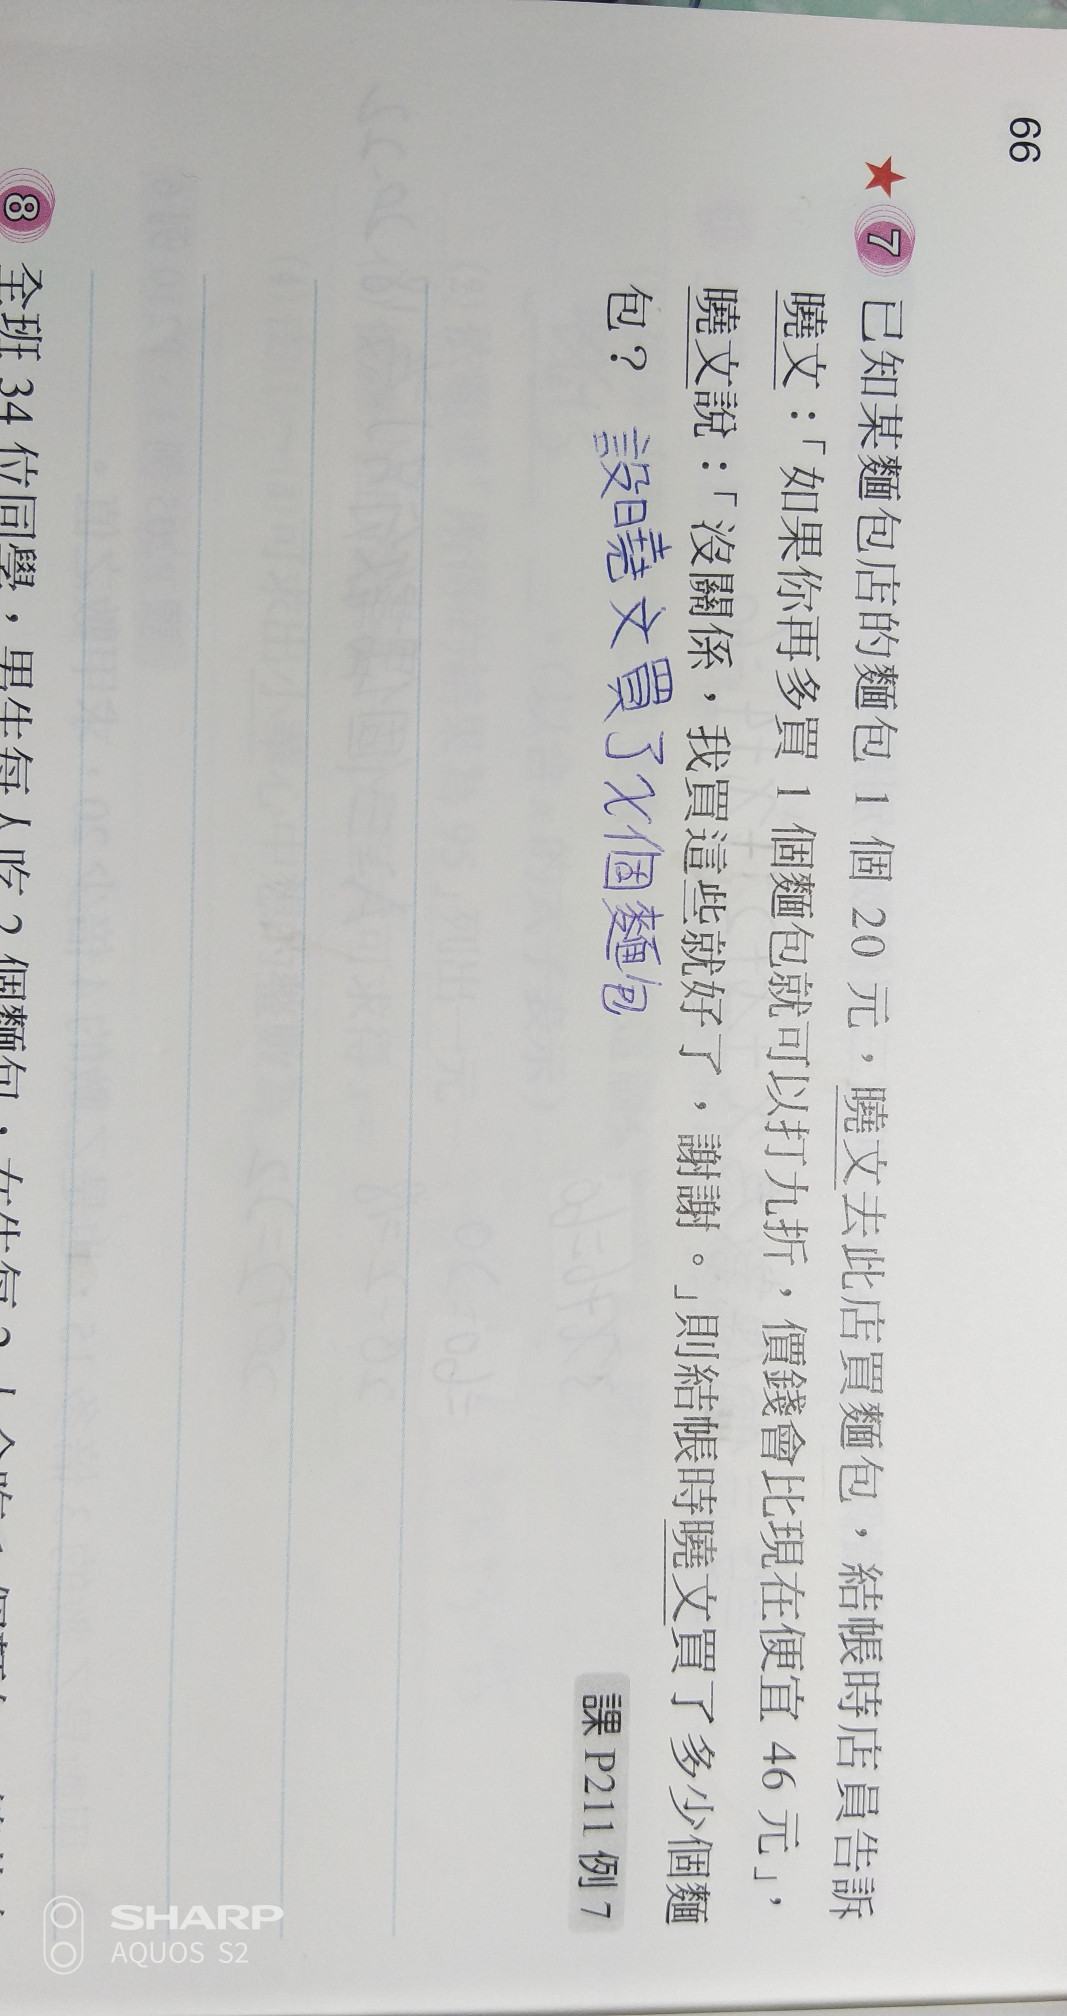 66
★7 已知某麵包店的麵包 1 個 20 元，曉文去此店買麵包，結帳時店員告訴
曉文：「如果你再多買 1 個麵包就可以打九折，價錢會比現在便宜 46 元」，
曉文說：「沒關係，我買這些就好了，謝謝。」則結帳時曉文買了多少個麵
包？ 設曉文買了x個麵包
課 P211 例 7
8 全班 34 位同學，男生每人吃 2 個麵包，女生每 2 人
SHARP
AQUOS S2